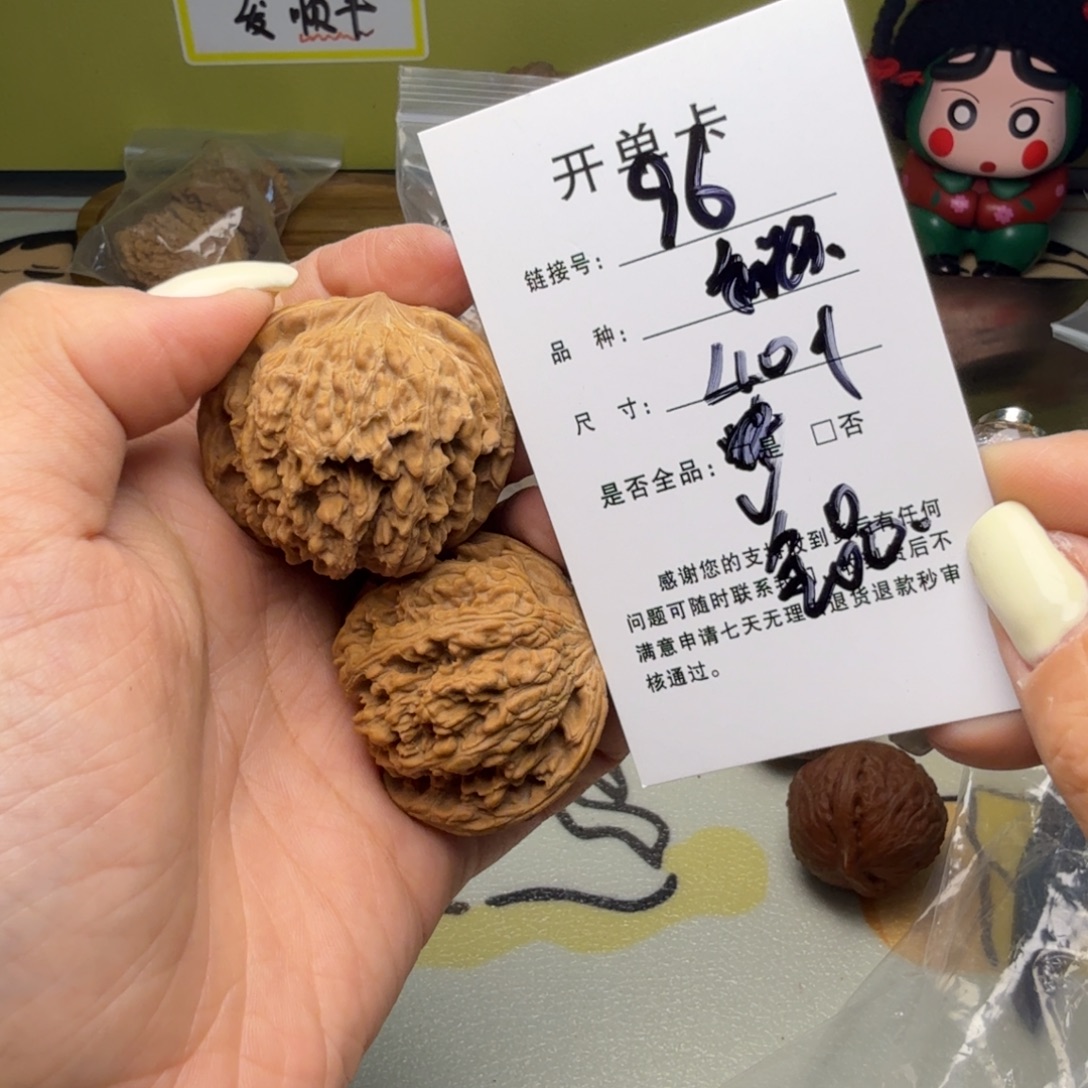 发 顺丰
开单卡
链接号： 96
品 种：
尺 寸： 401
是否全品： 是 □否
全品.
感谢您的支持收到货后有任何
问题可随时联系我 货后不
满意申请七天无理 退货退款秒审
核通过。